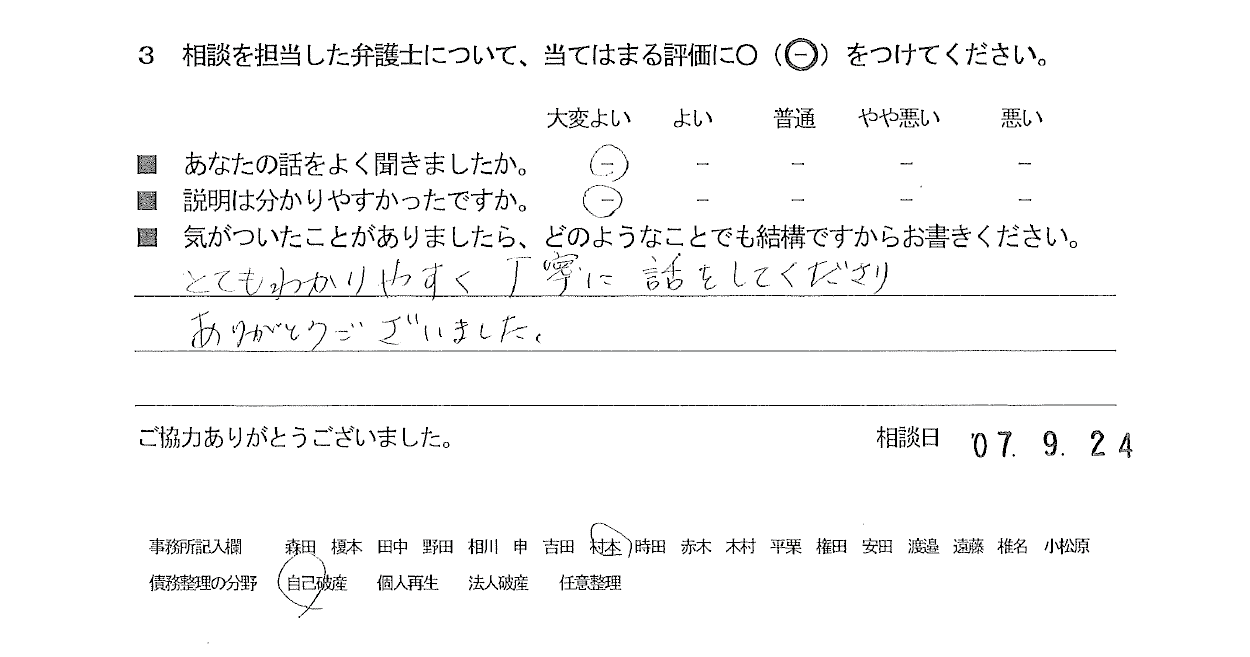 3 相談を担当した弁護士について、当てはまる評価に○（⊖）をつけてください。
大変よい よい 普通 やや悪い 悪い
■ あなたの話をよく聞きましたか。 － － － － －
■ 説明は分かりやすかったですか。 － － － － －
■ 気がついたことがありましたら、どのようなことでも結構ですからお書きください。
とてもわかりやすく丁寧に 話をしてくださり
ありがとうございました。
ご協力ありがとうございました。 相談日 '07. 9. 24
事務所記入欄 森田 榎本 田中 野田 相川 申 吉田 村本 時田 赤木 木村 平栗 権田 安田 渡邉 遠藤 椎名 小松原
債務整理の分野 自己破産 個人再生 法人破産 任意整理